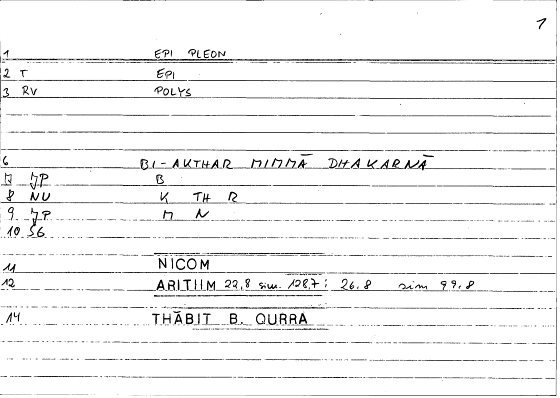 1
1 EPI PLEON
2 T EPI
3 RV POLYS
6 BI-AKTHAR MIMMĀ DHAKARNĀ
8 NU K TH R
9. JP M N
10 SG
11 NICOM
12 ARITHM 22,8 sim. 128,7; 26.8 sim 99.8
14 THĀBIT B. QURRA